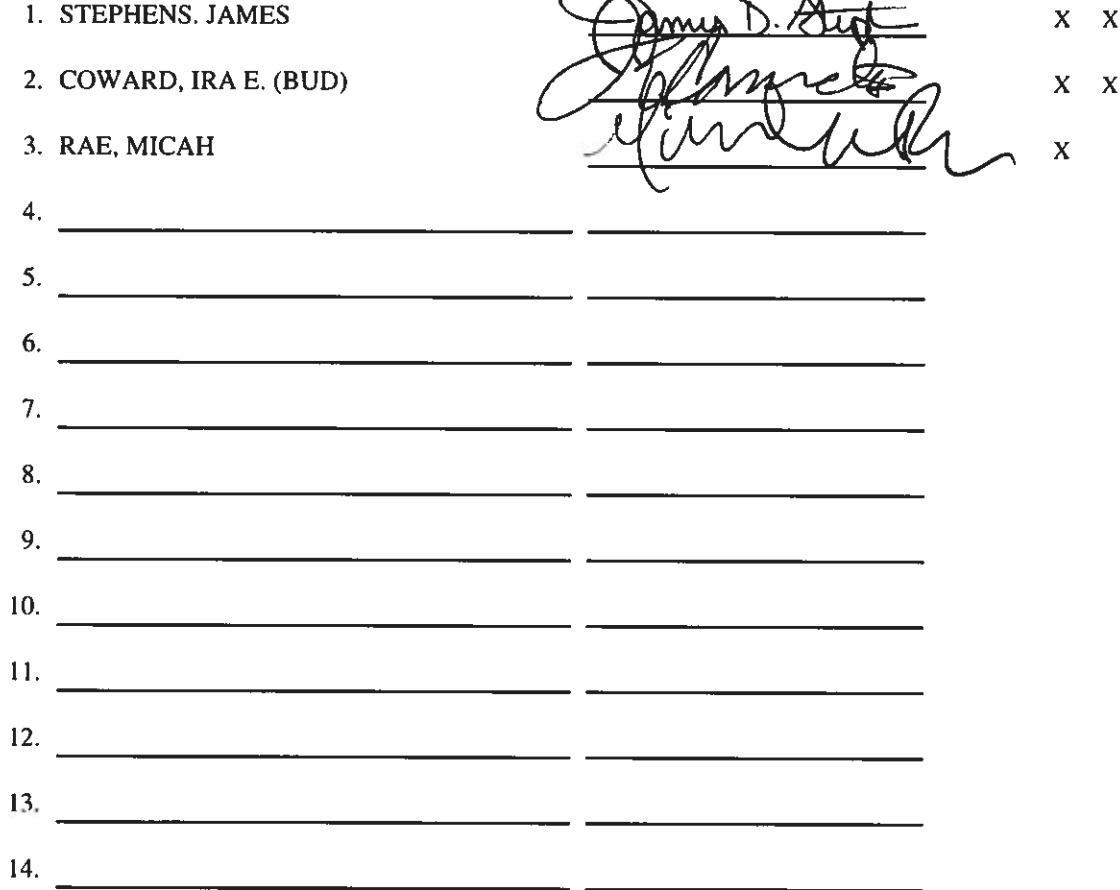 1. STEPHENS. JAMES James D. X X
2. COWARD, IRA E. (BUD) X X
3. RAE, MICAH X
4.
5.
6.
7.
8.
9.
10.
11.
12.
13.
14.